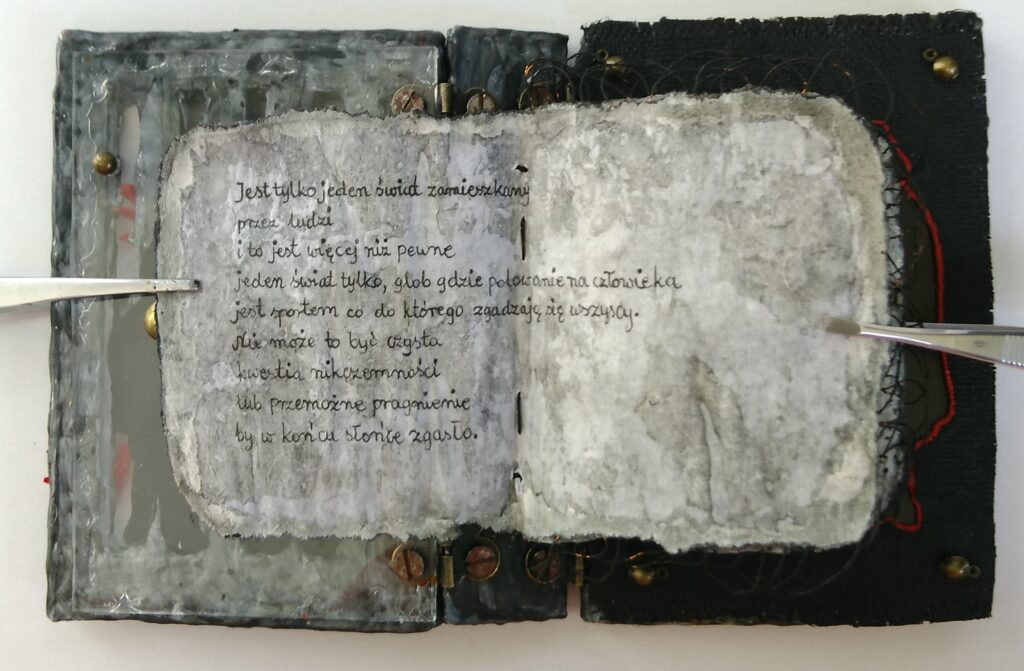 Jest tylko jeden świat zamieszkany
przez ludzi
i to jest więcej niż pewne
jeden świat tylko, glob gdzie polowanie na człowieka
jest sportem co do którego zgadzają się wszyscy.
Nie może to być czysta
kwestia nikczemności
lub przemożne pragnienie
by w końcu słońce zgasło.